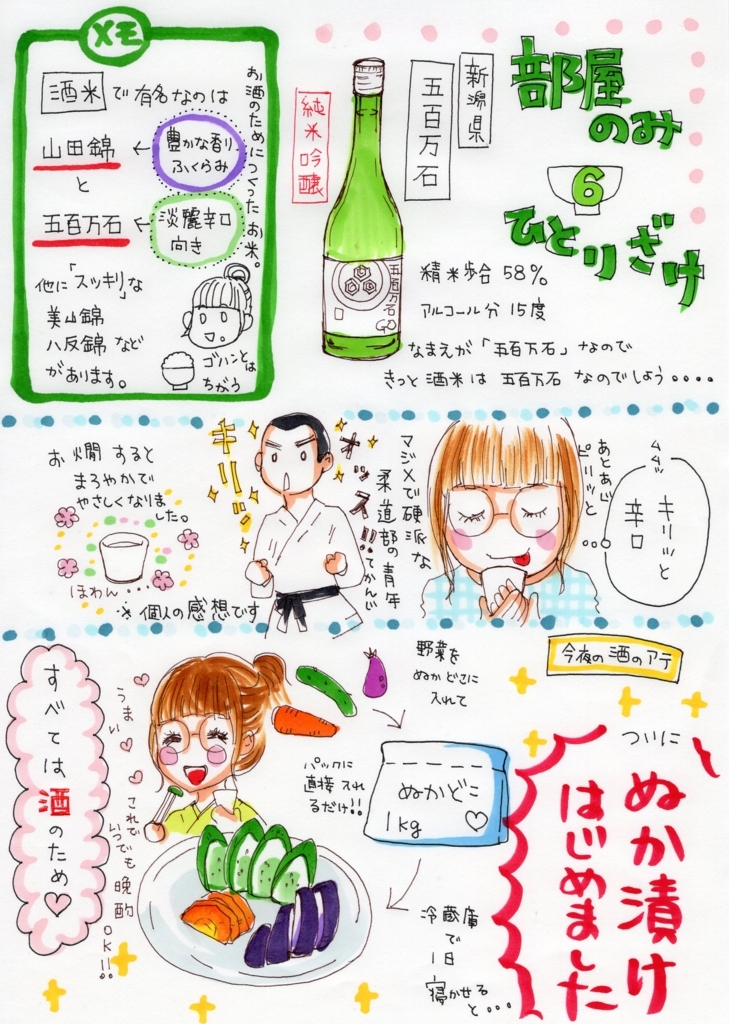 部屋
のみ
6
ひとりざけ
新潟県
五百万石
純米吟醸
五百万石
GO
精米歩合 58%
アルコール分 15度
なまえが「五百万石」なので
きっと酒米は 五百万石 なのでしょう・・・・
メモ
お酒のためにつくったお米。
酒米で有名なのは
山田錦
← 豊かな香り
ふくらみ
と
五百万石
← 淡麗辛口
向き
他に「スッキリ」な
美山錦
八反錦 など
があります。
ゴハンとは
ちがう
ムムッ
キリッと
辛口
あとあじ
ピリッと
・・・
マジメで硬派な
柔道部の青年
てかんじ
オッス!!
キリッ
お燗 すると
まろやかで
やさしくなりま
した。
ほわん・・・・
※個人の感想です
今夜の酒のアテ
ついに
ぬか漬け
はじめました
野菜を
ぬかどこに
入れて
パックに
直接入れ
るだけ!!
ぬかどこ
1kg ♡
冷蔵庫
で
1日
寝かせる
と・・・
うまい
これで
いつでも
晩酌
OK!!
すべては酒のため♡